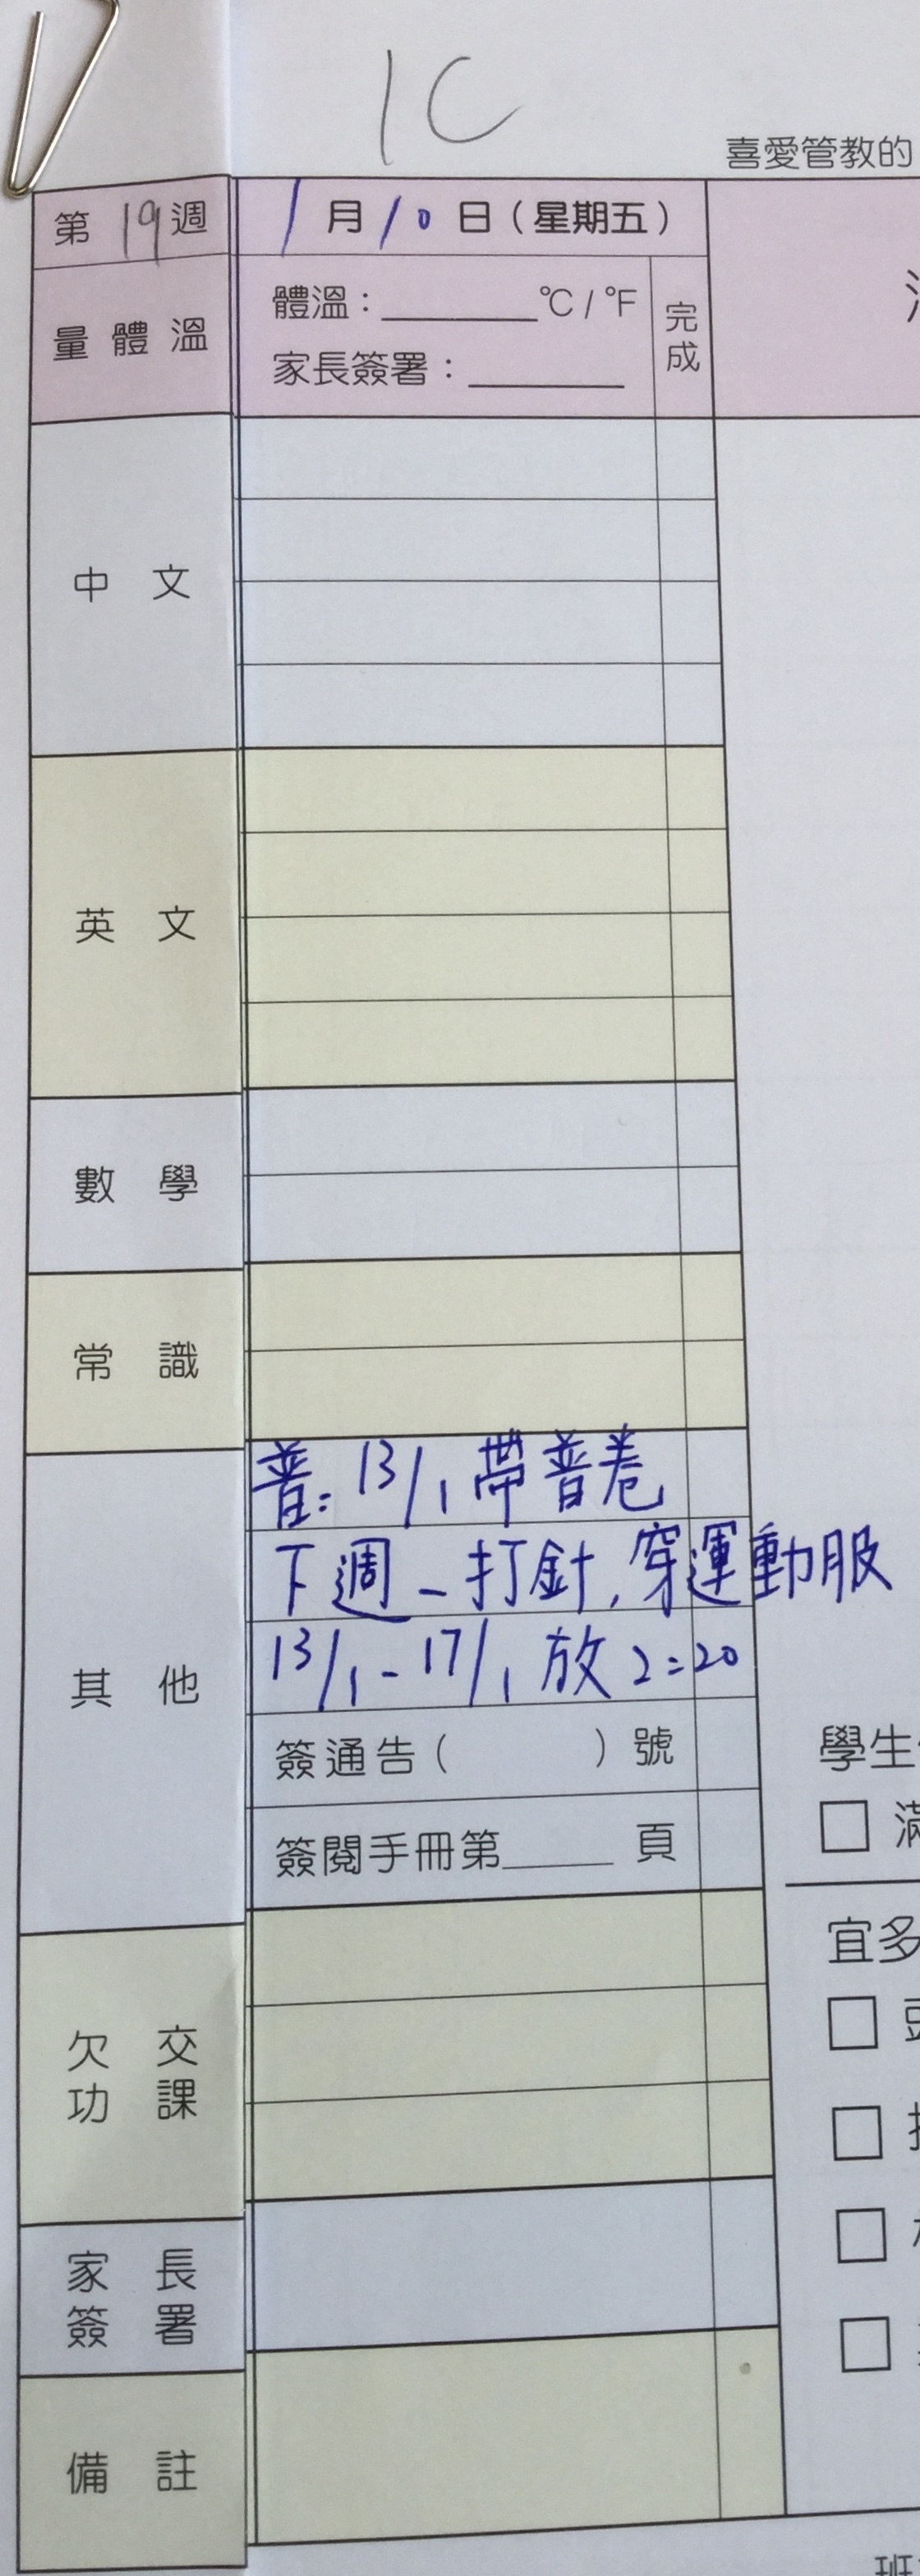 1C
喜愛管教的
第19週
1月10日（星期五）
量體溫
體溫：______°C / °F
家長簽署：______
完成
中文
英文
數學
常識
其他
普: 13/1 帶普卷
下週一打針, 穿運動服
13/1 - 17/1 放 2:20
簽通告（　　　）號
簽閱手冊第____頁
學生
宜多
欠交功課
家長簽署
備註